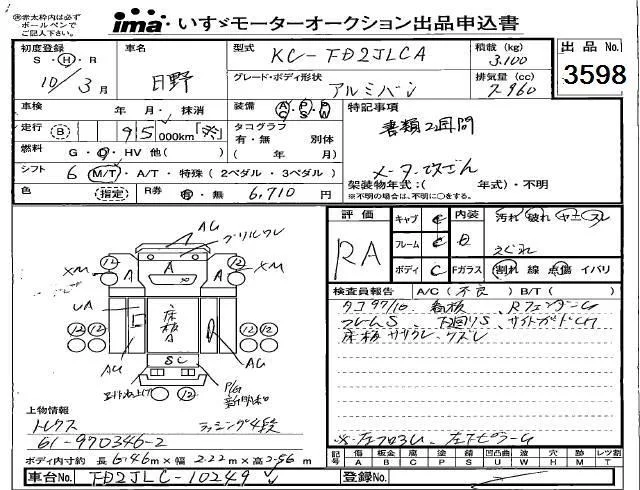 ※赤太枠内は必ず
ボールペンで
ご記入下さい。
ima・いすゞモーターオークション出品申込書
初度登録
S・H・R
10／3月
車名
日野
型式
KC-FD2JLCA
積載(kg)
3.100
出品No.
3598
グレード・ボディ形状
アルミバン
排気量(cc)
7.960
車検 年 月・抹消
装備 AC PS PW
特記事項
書類2週間
走行 (B) 95 000km「※」
タコグラフ
有・無 別体
( 年 月)
メーター改ざん
燃料 G・D・HV 他( )
シフト 6 M/T・A/T・特殊(2ペダル・3ペダル)
架装物年式:( 年式)・不明
※不明の場合は、不明に○をする。
色 (指定) R券 有・無 6,710円
評価 キャブ C 内装 汚れ 破れ ヤニ スレ
RA フレーム C D
ボディ C Fガラス 割れ 線 点傷 イバリ
検査員報告 A/C(不良) B/T( )
タコ97/10
フレームS、下廻りS、サイドガード
床板ササクレ、クズレ
AG
グリルワレ
12 A A A 12
XM XM
UA
床板
12 12
AG AG
SC
P/G
12
上物情報
トレクス
ラッシング4段
61-970346-2
ボディ内寸約 長6.46m×幅2.22m×高2.56m
記号 傷 板金 腐 塗 錆 凹凸曲 波 穴 跡 レツ割
A B C P S U W H M T
車台No. FD2JLC-10249
登録No.